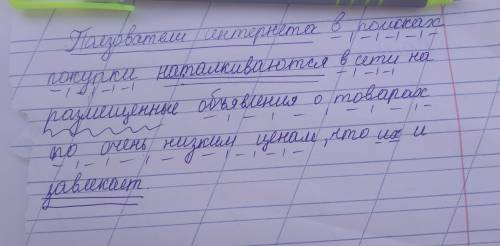 Пользователи интернета в поисках
покупки наталкиваются в сети на
размещенные объявления о товарах
по очень низким ценам, что их и
завлекает.